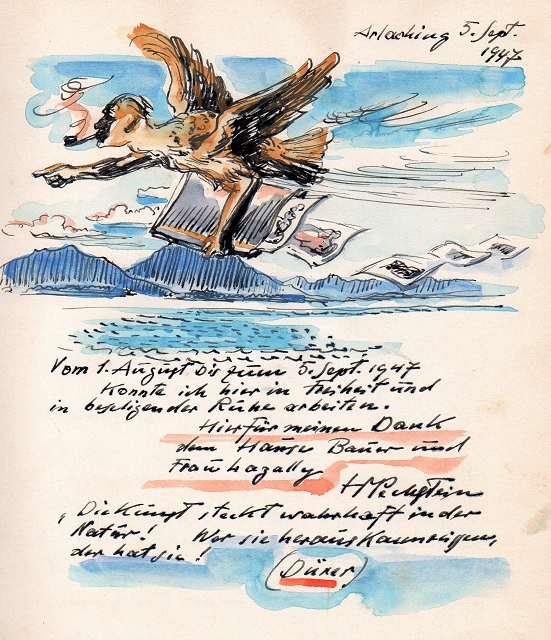 Arlaching 5. Sept.
1947
Vom 1. August bis zum 5. Sept. 1947
Konnte ich hier in Freiheit und
in beseligender Ruhe arbeiten.
Hierfür meinen Dank
dem Hause Bauer und
Frau Lagally
HMPechstein
„Die Kunst steckt wahrhaft in der
Natur! Wer sie heraus kann reißen,
der hat sie!
(Dürer)